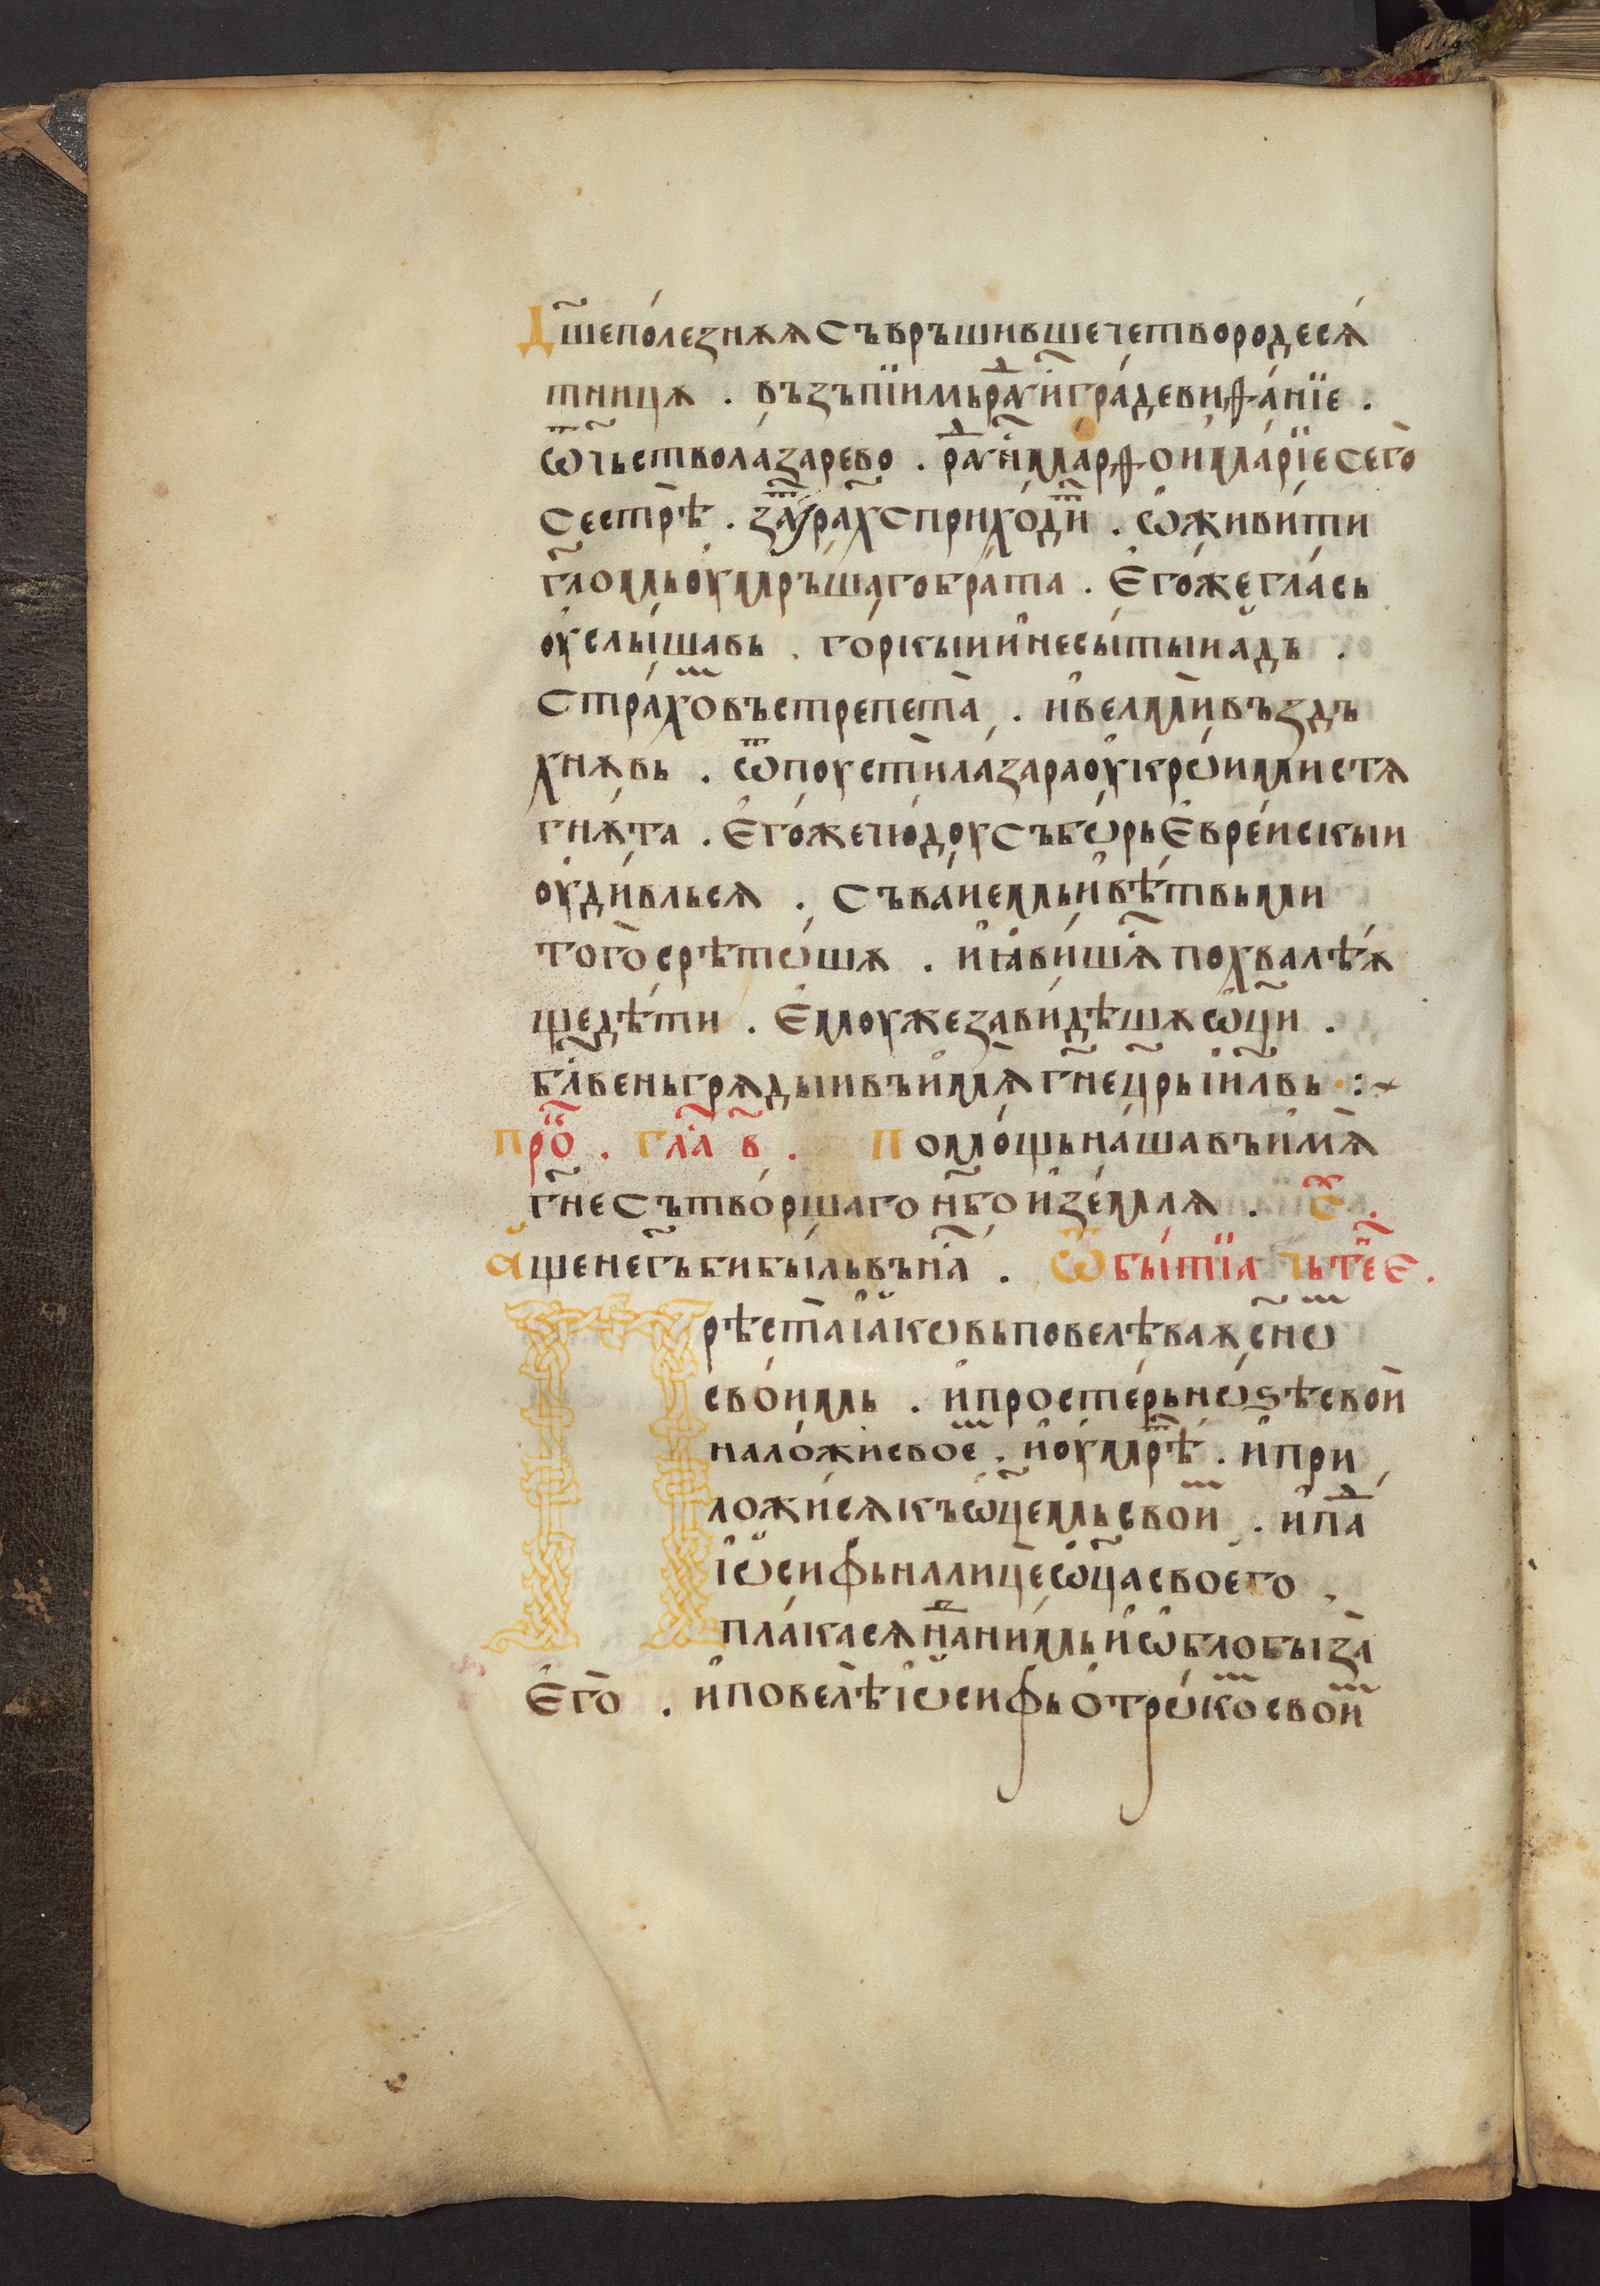 Дш҃епо́лезнѫѫ Съврьшивше четвородеся́
тницѫ . въ́зъпїимь раⷣуи҃ гра́де виѳа́нїе .
ѿч҃ьство ла́зарево . раⷣуи҃ марѳо и ма́рїе Сего̀
Сестрѣ̀ . заⷡу́траⷯ х҃С прихо́диⷮ . ѡ҆жⷤиви́ти
гл҃омь оу҆мръ́шаго бра́та . Є҆го́же гла́сь
оу҆слы́шавь . го́ркыи и҆ несы́тыи а́дъ .
Стра́хоⷨ въстрепета̀ , . и҆ велмѝ въздъ
хнѫ́вь . ѿпоустѝ ла́зара оу҆крѡ́ими стѧ
гнѫ́та . Є҆го́же чю́доу Събѡ́рь Є҆вре́искыи
оу҆ди́вльсѧ . Съ ва́иемь и҆ вѣ́твьми
того̀ срѣтѡ́шѫ . и҆ ꙗ҆ви́шѧⷭ҇ похвалѣ́ѫ
ще дѣ́ти . Є҆моуже зави́дѣшѫ ѡ҆ц҃и .
бл҃ве́нь грѧды́и въ и҆́мѧ гн҃е цр҃ь і҆и҃лвь . :~
прⷪ҇о . гла҃ в҃ . Помо́щь на́ша въ и҆́мѧ̀
гн҃е Сътво́ршаго н҃бо и҆ зе́млѧ . Сⷯ҇т .
А҆ще не гь҃ би бы́ль въ на҃ . Ѿ бытїа чьтеⷩ҇їе .
Прѣста̀ і҆а́кѡвь повелѣ́ваѫ сн҃ѡⷨ
свои́мь . и҆ просте́рь нѡ́ѕѣ свои̑
на ло́жи своеⷨ . и҆ оу҆мⷬ҇рѣ . и҆ при
ложи́сѧ къ ѡ҆ц҃емь своиⷨ . и҆ паⷣ
і҆ѡ́сифь на лицѐ ѡ҆ц҃а своего̀ .
пла́касѧ наⷣ ни́мь и҆ ѡ҆блобыза̀
Є҆го̀ . и҆ повелѣ̀ і҆ѡ́сифь О҆трѡ́коⷨ своиⷨ